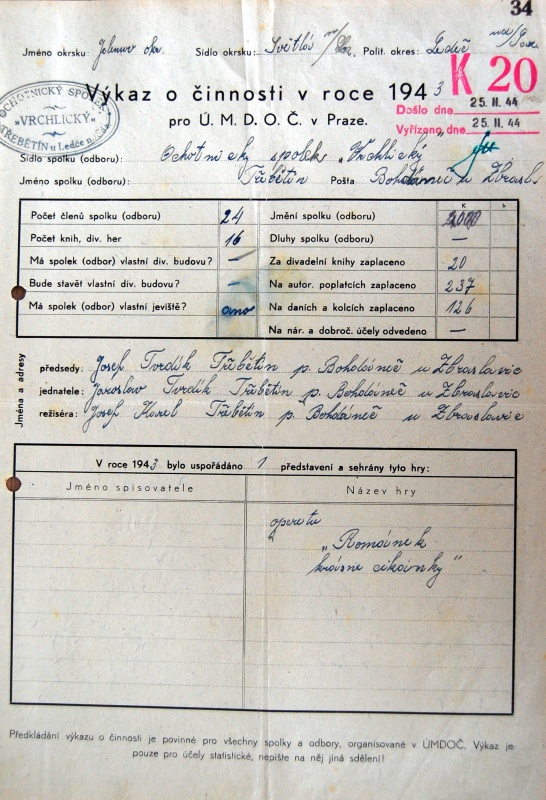 34
Jméno okrsku: Jelenův Sídlo okrsku: Světlá n/Sáz. Polit. okres: Ledeč nad/Sáz.
K 20
OCHOTNICKÝ SPOLEK
„VRCHLICKÝ"
TŘEBĚTÍN u Ledče n. Sáz.
Výkaz o činnosti v roce 1943
pro Ú. M. D. O. Č. v Praze.
Došlo dne 25. II. 44
Vyřízeno dne 25. II. 44
Sídlo spolku (odboru): Ochotnický spolek „Vrchlický"
Jméno spolku (odboru): Třebětín Pošta Bohdaneč u Zbrasl.
K h
Počet členů spolku (odboru) 24 Jmění spolku (odboru)
Počet knih, div. her 16 Dluhy spolku (odboru) —
Má spolek (odbor) vlastní div. budovu? — Za divadelní knihy zaplaceno 20
Bude stavět vlastní div. budovu? — Na autor. poplatcích zaplaceno 237
Má spolek (odbor) vlastní jeviště? ano Na daních a kolcích zaplaceno 126
Na nár. a dobroč. účely odvedeno —
Jména a adresy
předsedy: Josef Tvrdík Třebětín p. Bohdáneč u Zbraslavic
jednatele: Jaroslav Tvrdík Třebětín p. Bohdáneč u Zbraslavic
režiséra: Josef Karel Třebětín p. Bohdáneč u Zbraslavic
V roce 1943 bylo uspořádáno 1 představení a sehrány tyto hry:
Jméno spisovatele Název hry
operetu
„Románek
krásné cikánky"
Předkládání výkazu o činnosti je povinné pro všechny spolky a odbory, organisované v ÚMDOČ. Výkaz je
pouze pro účely statistické, nepište na něj jiná sdělení!